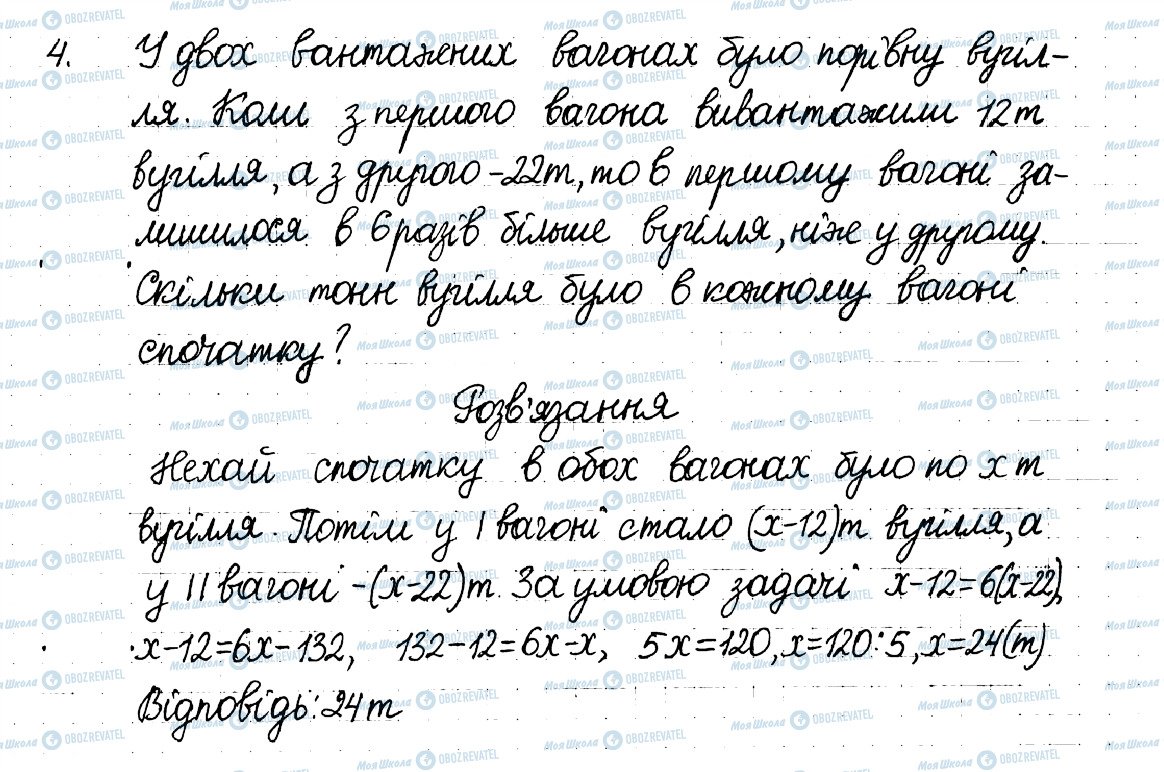 4. У двох вантажених вагонах було порівну вугіл-
ля. Коли з першого вагона вивантажили 12т
вугілля, а з другого - 22т, то в першому вагоні за-
лишилося в 6 разів більше вугілля, ніже у другому.
Скільки тонн вугілля було в кожному вагоні
спочатку?
Розв'язання
Нехай спочатку в обох вагонах було по х т
вугілля. Потім у I вагоні стало (х-12)т вугілля, а
у II вагоні - (х-22)т. За умовою задачі х-12=6(х-22),
х-12=6х-132, 132-12=6х-х, 5х=120, х=120:5, х=24(т)
Відповідь: 24т